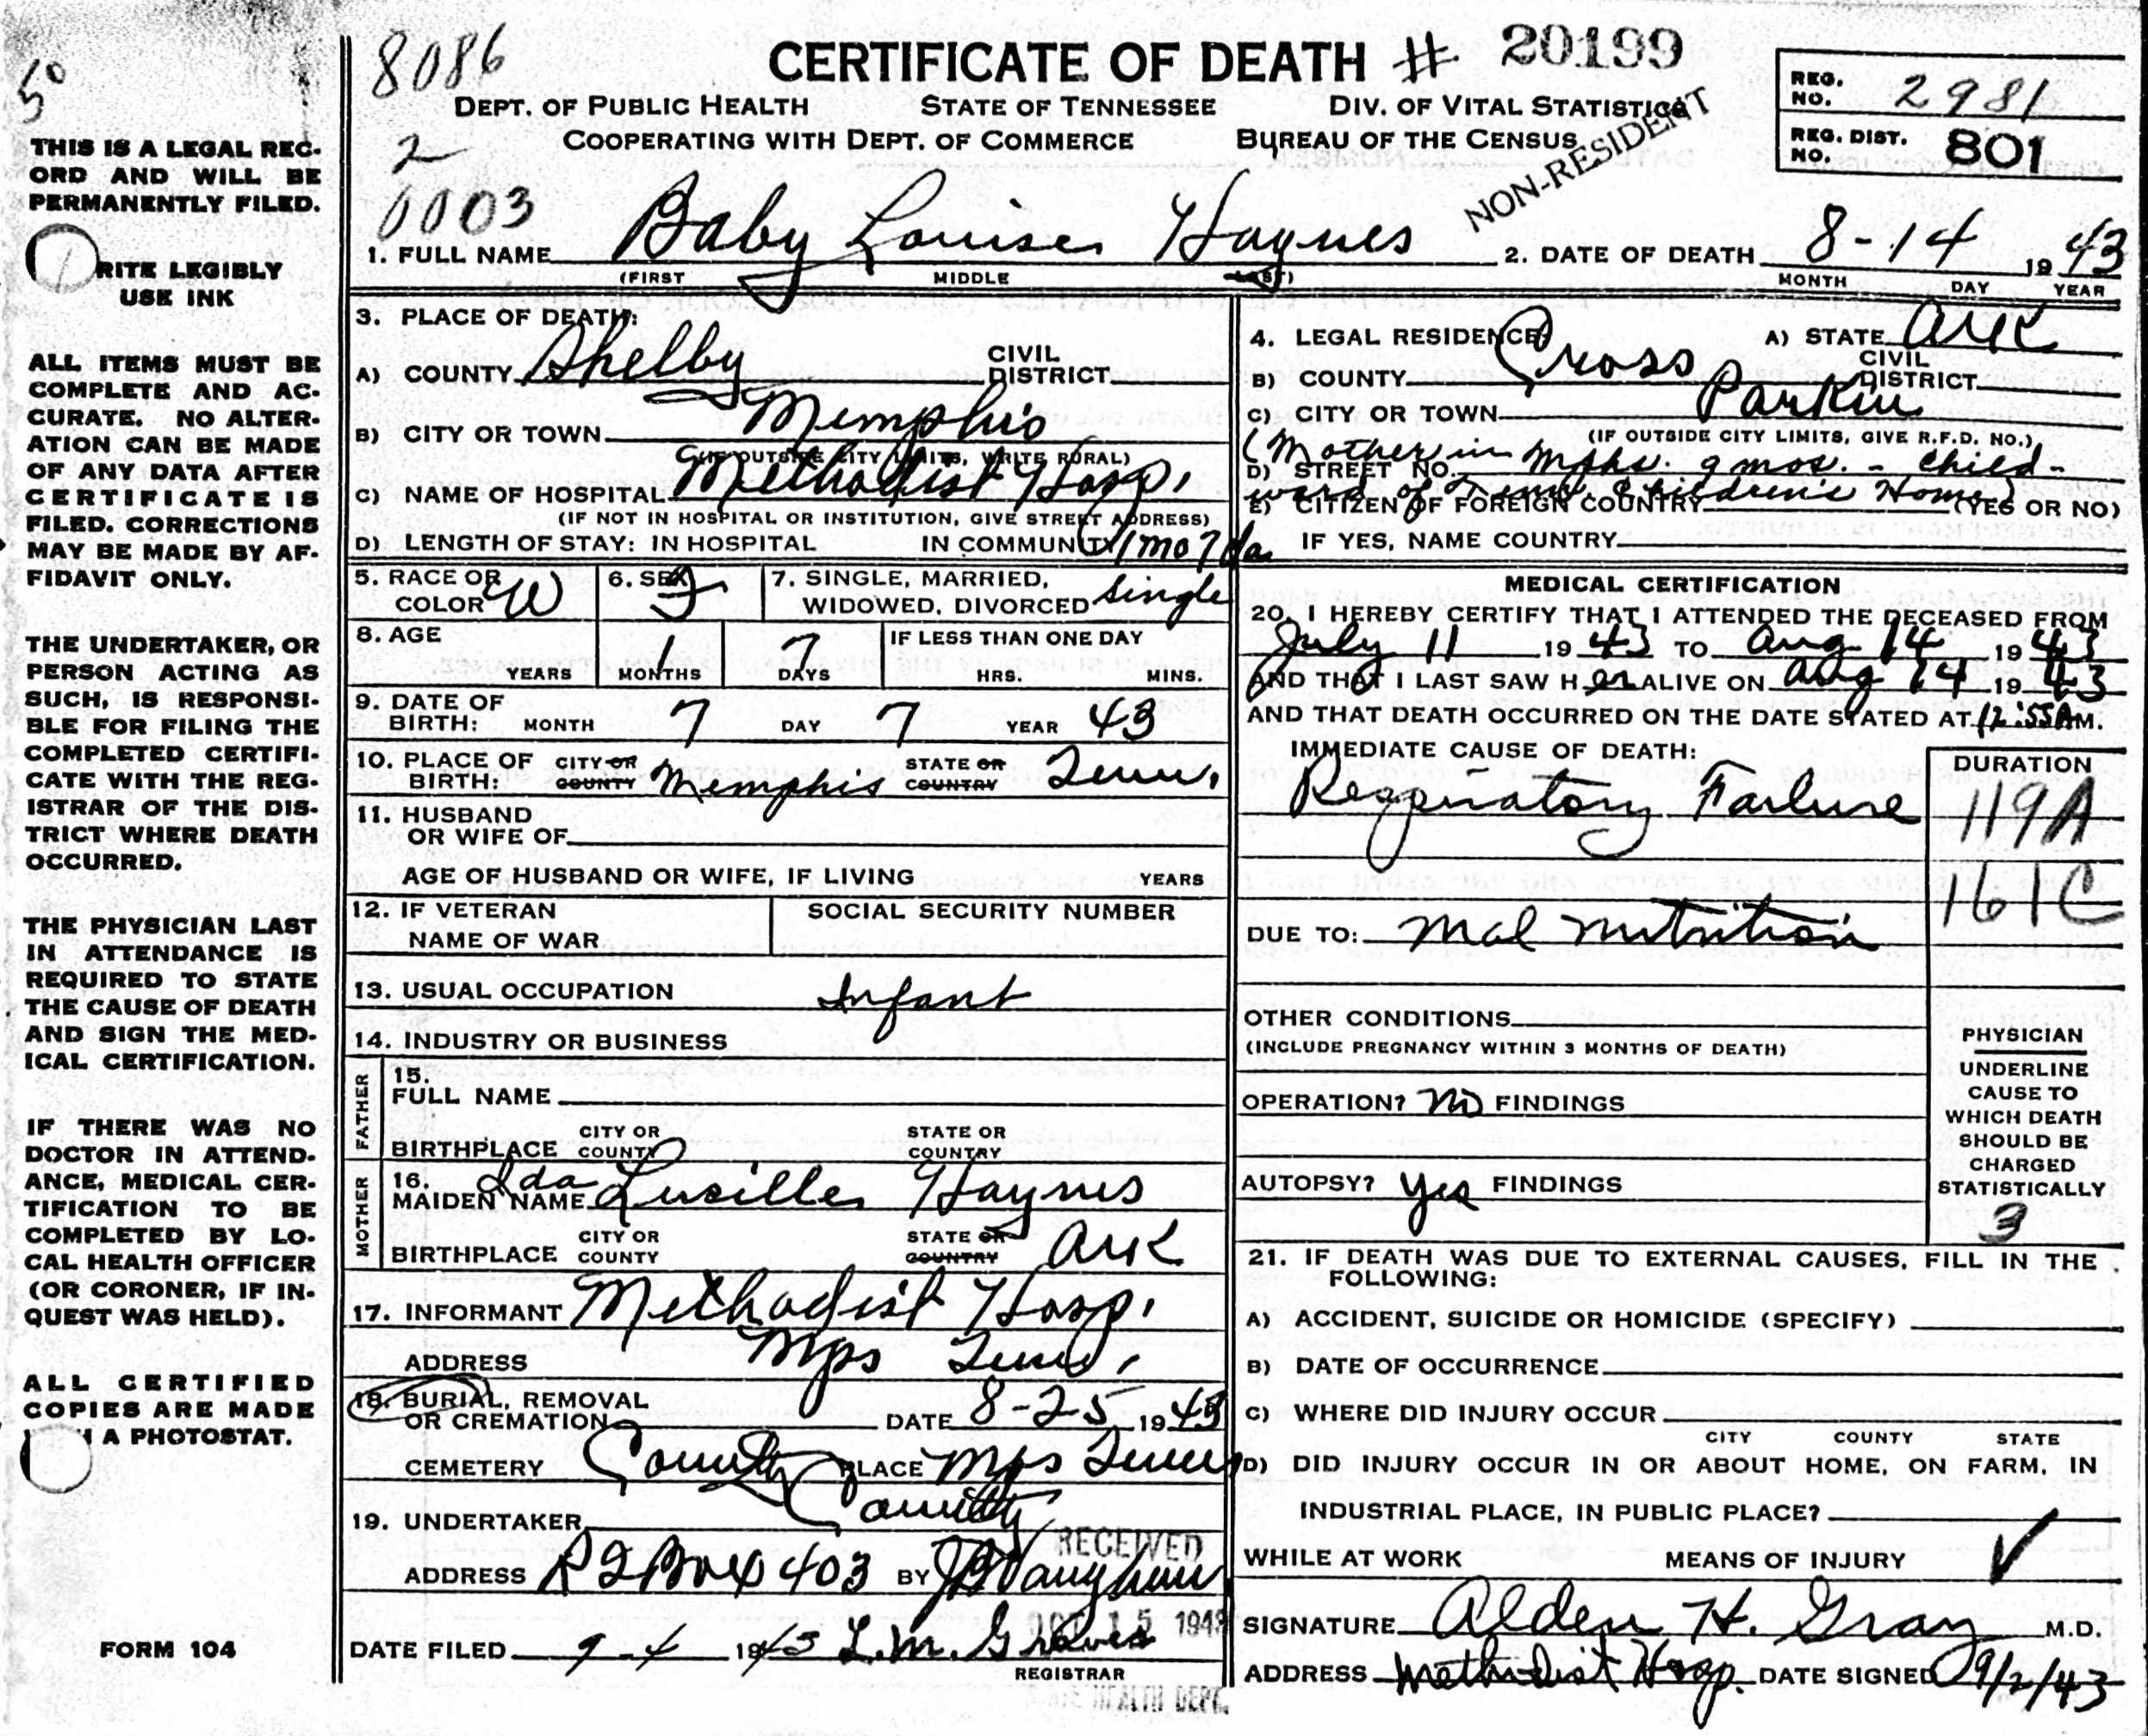 5°
THIS IS A LEGAL REC-
ORD AND WILL BE
PERMANENTLY FILED.
RITE LEGIBLY
USE INK
ALL ITEMS MUST BE
COMPLETE AND AC-
CURATE. NO ALTER-
ATION CAN BE MADE
OF ANY DATA AFTER
CERTIFICATE IS
FILED. CORRECTIONS
MAY BE MADE BY AF-
FIDAVIT ONLY.
THE UNDERTAKER, OR
PERSON ACTING AS
SUCH, IS RESPONSI-
BLE FOR FILING THE
COMPLETED CERTIFI-
CATE WITH THE REG-
ISTRAR OF THE DIS-
TRICT WHERE DEATH
OCCURRED.
THE PHYSICIAN LAST
IN ATTENDANCE IS
REQUIRED TO STATE
THE CAUSE OF DEATH
AND SIGN THE MED-
ICAL CERTIFICATION.
IF THERE WAS NO
DOCTOR IN ATTEND-
ANCE, MEDICAL CER-
TIFICATION TO BE
COMPLETED BY LO-
CAL HEALTH OFFICER
(OR CORONER, IF IN-
QUEST WAS HELD).
ALL CERTIFIED
COPIES ARE MADE
A PHOTOSTAT.
FORM 104
8086
CERTIFICATE OF DEATH # 20199
DEPT. OF PUBLIC HEALTH STATE OF TENNESSEE DIV. OF VITAL STATISTICS
COOPERATING WITH DEPT. OF COMMERCE BUREAU OF THE CENSUS
NON-RESIDENT
REG. NO. 2981
REG. DIST. NO. 801
2
0003
1. FULL NAME Baby Louise Haynes
(FIRST MIDDLE LAST)
2. DATE OF DEATH 8-14 1943
MONTH DAY YEAR
3. PLACE OF DEATH:
A) COUNTY Shelby CIVIL DISTRICT
B) CITY OR TOWN Memphis
(IF OUTSIDE CITY LIMITS, WRITE RURAL)
C) NAME OF HOSPITAL Methodist Hosp.
(IF NOT IN HOSPITAL OR INSTITUTION, GIVE STREET ADDRESS)
D) LENGTH OF STAY: IN HOSPITAL IN COMMUNITY 1 mo 7 da
4. LEGAL RESIDENCE: A) STATE Ark
B) COUNTY Cross CIVIL DISTRICT
C) CITY OR TOWN Parkin
(IF OUTSIDE CITY LIMITS, GIVE R.F.D. NO.)
(Mother in Mphs. 9 mos. - Child -
D) STREET NO.
ward of Tenn Children's Home)
E) CITIZEN OF FOREIGN COUNTRY (YES OR NO)
IF YES, NAME COUNTRY
5. RACE OR COLOR W
6. SEX F
7. SINGLE, MARRIED, WIDOWED, DIVORCED Single
8. AGE YEARS 1 MONTHS 7 DAYS IF LESS THAN ONE DAY HRS. MINS.
9. DATE OF BIRTH: MONTH 7 DAY 7 YEAR 43
10. PLACE OF BIRTH: CITY OR COUNTY Memphis STATE OR COUNTRY Tenn.
11. HUSBAND OR WIFE OF
AGE OF HUSBAND OR WIFE, IF LIVING YEARS
12. IF VETERAN NAME OF WAR SOCIAL SECURITY NUMBER
13. USUAL OCCUPATION Infant
14. INDUSTRY OR BUSINESS
FATHER
15. FULL NAME
BIRTHPLACE CITY OR COUNTY STATE OR COUNTRY
MOTHER
16. MAIDEN NAME Ida Lucille Haynes
BIRTHPLACE CITY OR COUNTY STATE OR COUNTRY Ark
17. INFORMANT Methodist Hosp.
ADDRESS Mps Tenn.
18. BURIAL, REMOVAL OR CREMATION DATE 8-25 1943
CEMETERY County PLACE Mps Tenn
19. UNDERTAKER County
RECEIVED
ADDRESS R2 Box 403 BY J B Vaughan
OCT 15 1943
DATE FILED 9-4 1943 L.M. Graves
REGISTRAR
HEALTH DEPT.
MEDICAL CERTIFICATION
20. I HEREBY CERTIFY THAT I ATTENDED THE DECEASED FROM
July 11 1943 TO Aug 14 1943
AND THAT I LAST SAW HER ALIVE ON Aug 14 1943
AND THAT DEATH OCCURRED ON THE DATE STATED AT 12:55 AM.
IMMEDIATE CAUSE OF DEATH: DURATION
Respiratory Failure 119A
161C
DUE TO: Mal nutrition
OTHER CONDITIONS
(INCLUDE PREGNANCY WITHIN 3 MONTHS OF DEATH)
OPERATION? No FINDINGS
AUTOPSY? Yes FINDINGS
PHYSICIAN
UNDERLINE
CAUSE TO
WHICH DEATH
SHOULD BE
CHARGED
STATISTICALLY
3
21. IF DEATH WAS DUE TO EXTERNAL CAUSES, FILL IN THE
FOLLOWING:
A) ACCIDENT, SUICIDE OR HOMICIDE (SPECIFY)
B) DATE OF OCCURRENCE
C) WHERE DID INJURY OCCUR
CITY COUNTY STATE
D) DID INJURY OCCUR IN OR ABOUT HOME, ON FARM, IN
INDUSTRIAL PLACE, IN PUBLIC PLACE?
WHILE AT WORK MEANS OF INJURY ✓
SIGNATURE Alden H. Gray M.D.
ADDRESS Methodist Hosp. DATE SIGNED 9/2/43